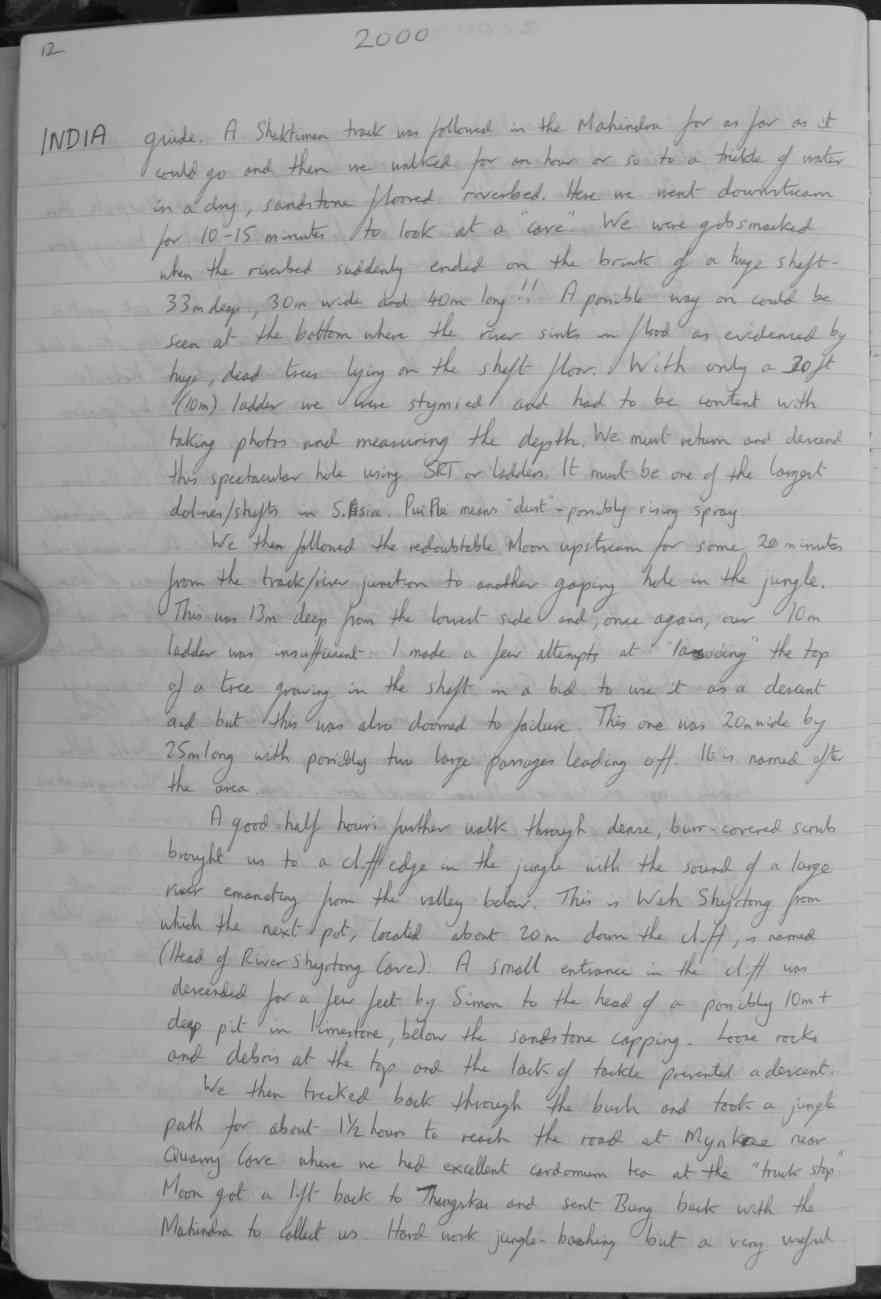 12
2000
INDIA guide. A Shaktiman track was followed in the Mahindra for as far as it
could go and then we walked for an hour or so to a trickle of water
in a dry, sandstone floored riverbed. Here we went downstream
for 10-15 minutes to look at a "cave" We were gobsmacked
when the riverbed suddenly ended on the brink of a huge shaft -
33m deep, 30m wide and 40m long!! A possible way on could be
seen at the bottom where the river sinks in flood as evidenced by
huge, dead trees lying on the shaft floor. With only a 30ft
(10m) ladder we were stymied and had to be content with
taking photos and measuring the depth. We must return and descend
this spectacular hole using SRT or ladders. It must be one of the largest
dolines/shafts in S. Asia. means "dust" - possibly rising spray.
We then followed the redoubtable Moon upstream for some 20 minutes
from the track/river junction to another gaping hole in the jungle.
This was 13m deep from the lowest side and, once again, our 10m
ladder was insufficient. I made a few attempts at "lassooing" the top
of a tree growing in the shaft in a bid to use it as a descent
aid but this was also doomed to failure. This one was 20m wide by
25m long with possibly two large passages leading off. It is named after
the area.
A good half hours further walk through dense, burr-covered scrub
brought us to a cliff edge in the jungle with the sound of a large
river emanating from the valley below. This is Wah Shyrtong from
which the next pot, located about 20m down the cliff, is named
(Head of River Shyrtong Cave). A small entrance in the cliff was
descended for a few feet by Simon to the head of a possibly 10m+
deep pit in limestone, below the sandstone capping. Loose rocks
and debris at the top and the lack of tackle prevented a descent.
We then trecked back through the bush and took a jungle
path for about 1½ hours to reach the road at near
Quarry Cave where we had excellent cardomum tea at the "truck stop"
Moon got a lift back to and sent Bung back with the
Mahindra to collect us. Hard work jungle-bashing but a very useful